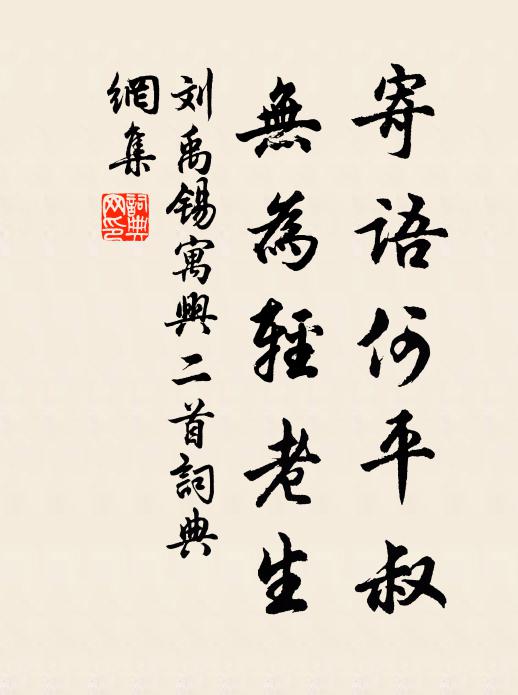 寄語何平叔
無為輕老生
刘禹錫寓興二首詞典
網集
詞典
网印